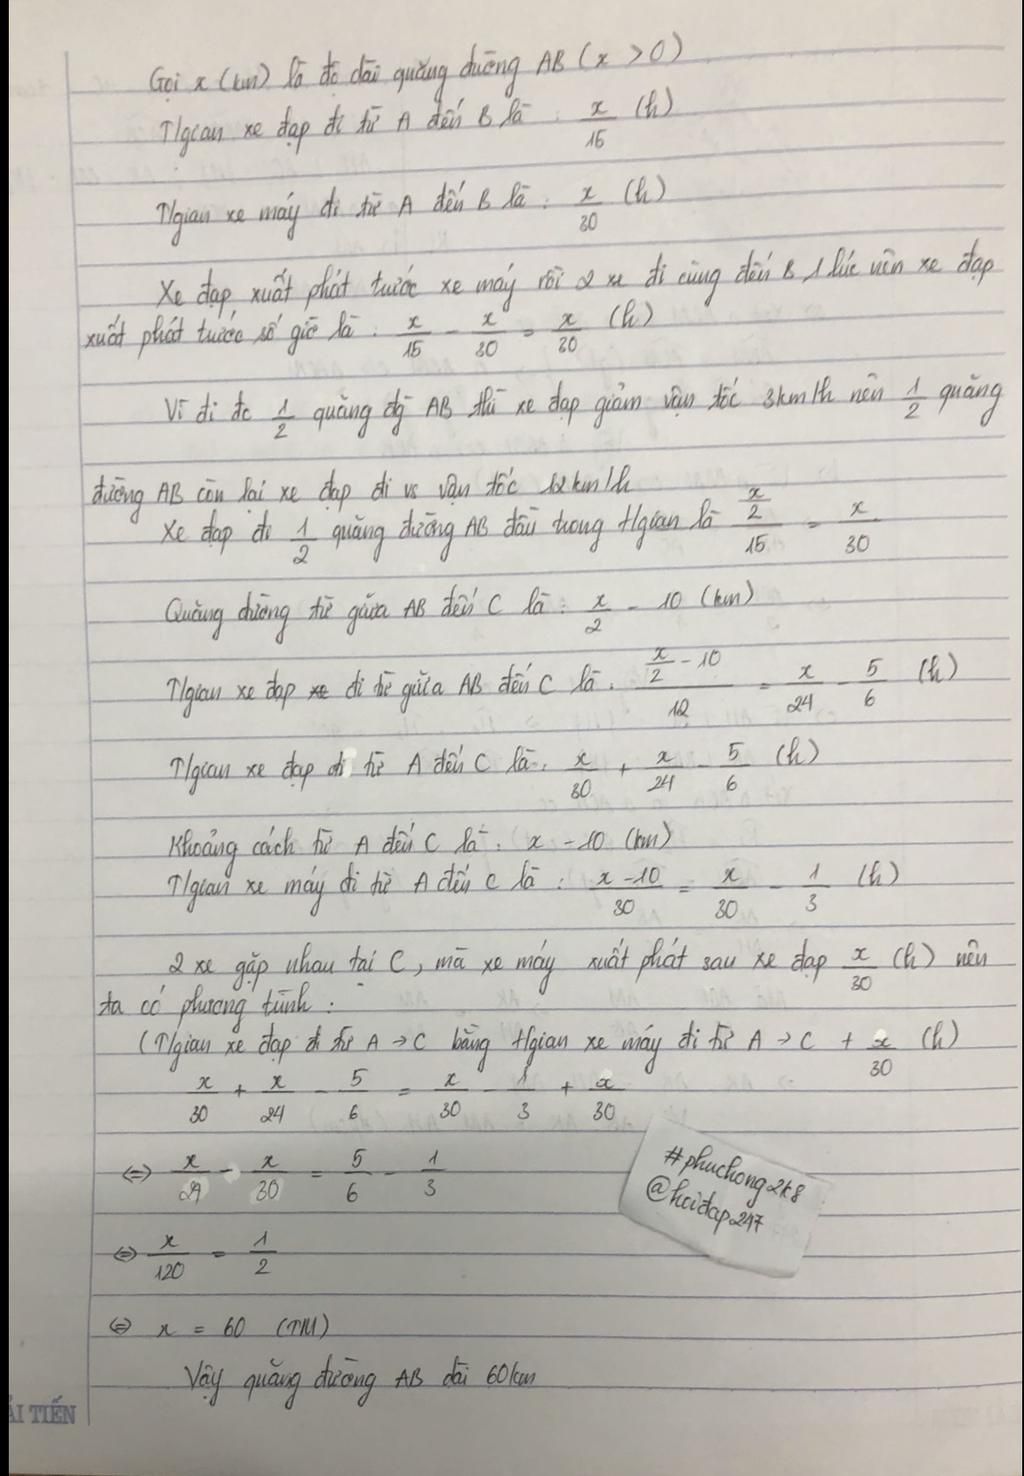 Gọi x (km) là độ dài quãng đường AB (x > 0)
T/gian xe đạp đi từ A đến B là : x/15 (h)
T/gian xe máy đi từ A đến B là : x/30 (h)
Xe đạp xuất phát trước xe máy rồi 2 xe đi cùng đến B 1 lúc nên xe đạp
xuất phát trước số giờ là : x/15 - x/30 = x/30 (h)
Vì đi đc 1/2 quãng đg AB thì xe đạp giảm vận tốc 3km/h nên 1/2 quãng
đường AB còn lại xe đạp đi vs vận tốc 12km/h
Xe đạp đi 1/2 quãng đường AB đầu trong t/gian là (x/2)/15 = x/30
Quãng đường từ giữa AB đến C là : x/2 - 10 (km)
T/gian xe đạp xe đi từ giữa AB đến C là : (x/2 - 10)/12 = x/24 - 5/6 (h)
T/gian xe đạp đi từ A đến C là : x/30 + x/24 - 5/6 (h)
Khoảng cách từ A đến C là : x - 10 (km)
T/gian xe máy đi từ A đến C là : (x - 10)/30 = x/30 - 1/3 (h)
2 xe gặp nhau tại C, mà xe máy xuất phát sau xe đạp x/30 (h) nên
ta có phương trình :
(T/gian xe đạp đi từ A → C bằng t/gian xe máy đi từ A → C + x/30 (h)
x/30 + x/24 - 5/6 = x/30 - 1/3 + x/30
⇔ x/24 - x/30 = 5/6 - 1/3
⇔ x/120 = 1/2
⇔ x = 60 (TM)
Vậy quãng đường AB dài 60km
#phuchong2k8
@hoidap247
ẢI TIẾN